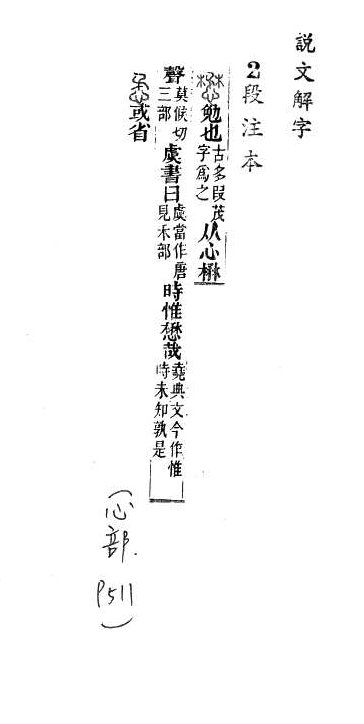 説文解字
2段注本
懋勉也古多叚茂字爲之从心楙
聲莫候切三部虞書曰虞當作唐見禾部時惟懋哉堯典文今作惟時未知孰是
或省
(心部.P511)